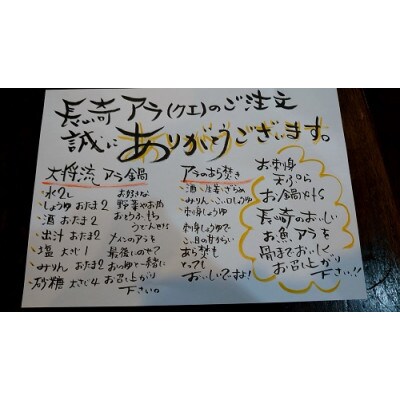 長崎アラ(クエ)のご注文
誠にありがとうございます。
大将流 アラ鍋
・水2L
・しょうゆ おたま2
・酒 おたま2
・出汁 おたま2
・塩 大さじ1
・みりん おたま2
・砂糖 大さじ4
お好きな
野菜やお肉
おとうふ、もち
うどんなど!
メインのアラを
最後にのせて
おつゆと一緒に
お召し上がり
下さい。
アラのあら焚き
・酒・生姜・ざらめ
・みりん・こい口しょうゆ
・刺身しょうゆ
刺身しょうゆで
あら焚も
とっても
おいしいですよ!
お刺身
天ぷら
お鍋
長崎のおいしい
お魚アラを
骨までおいしく
お召し上がり
下さい!!